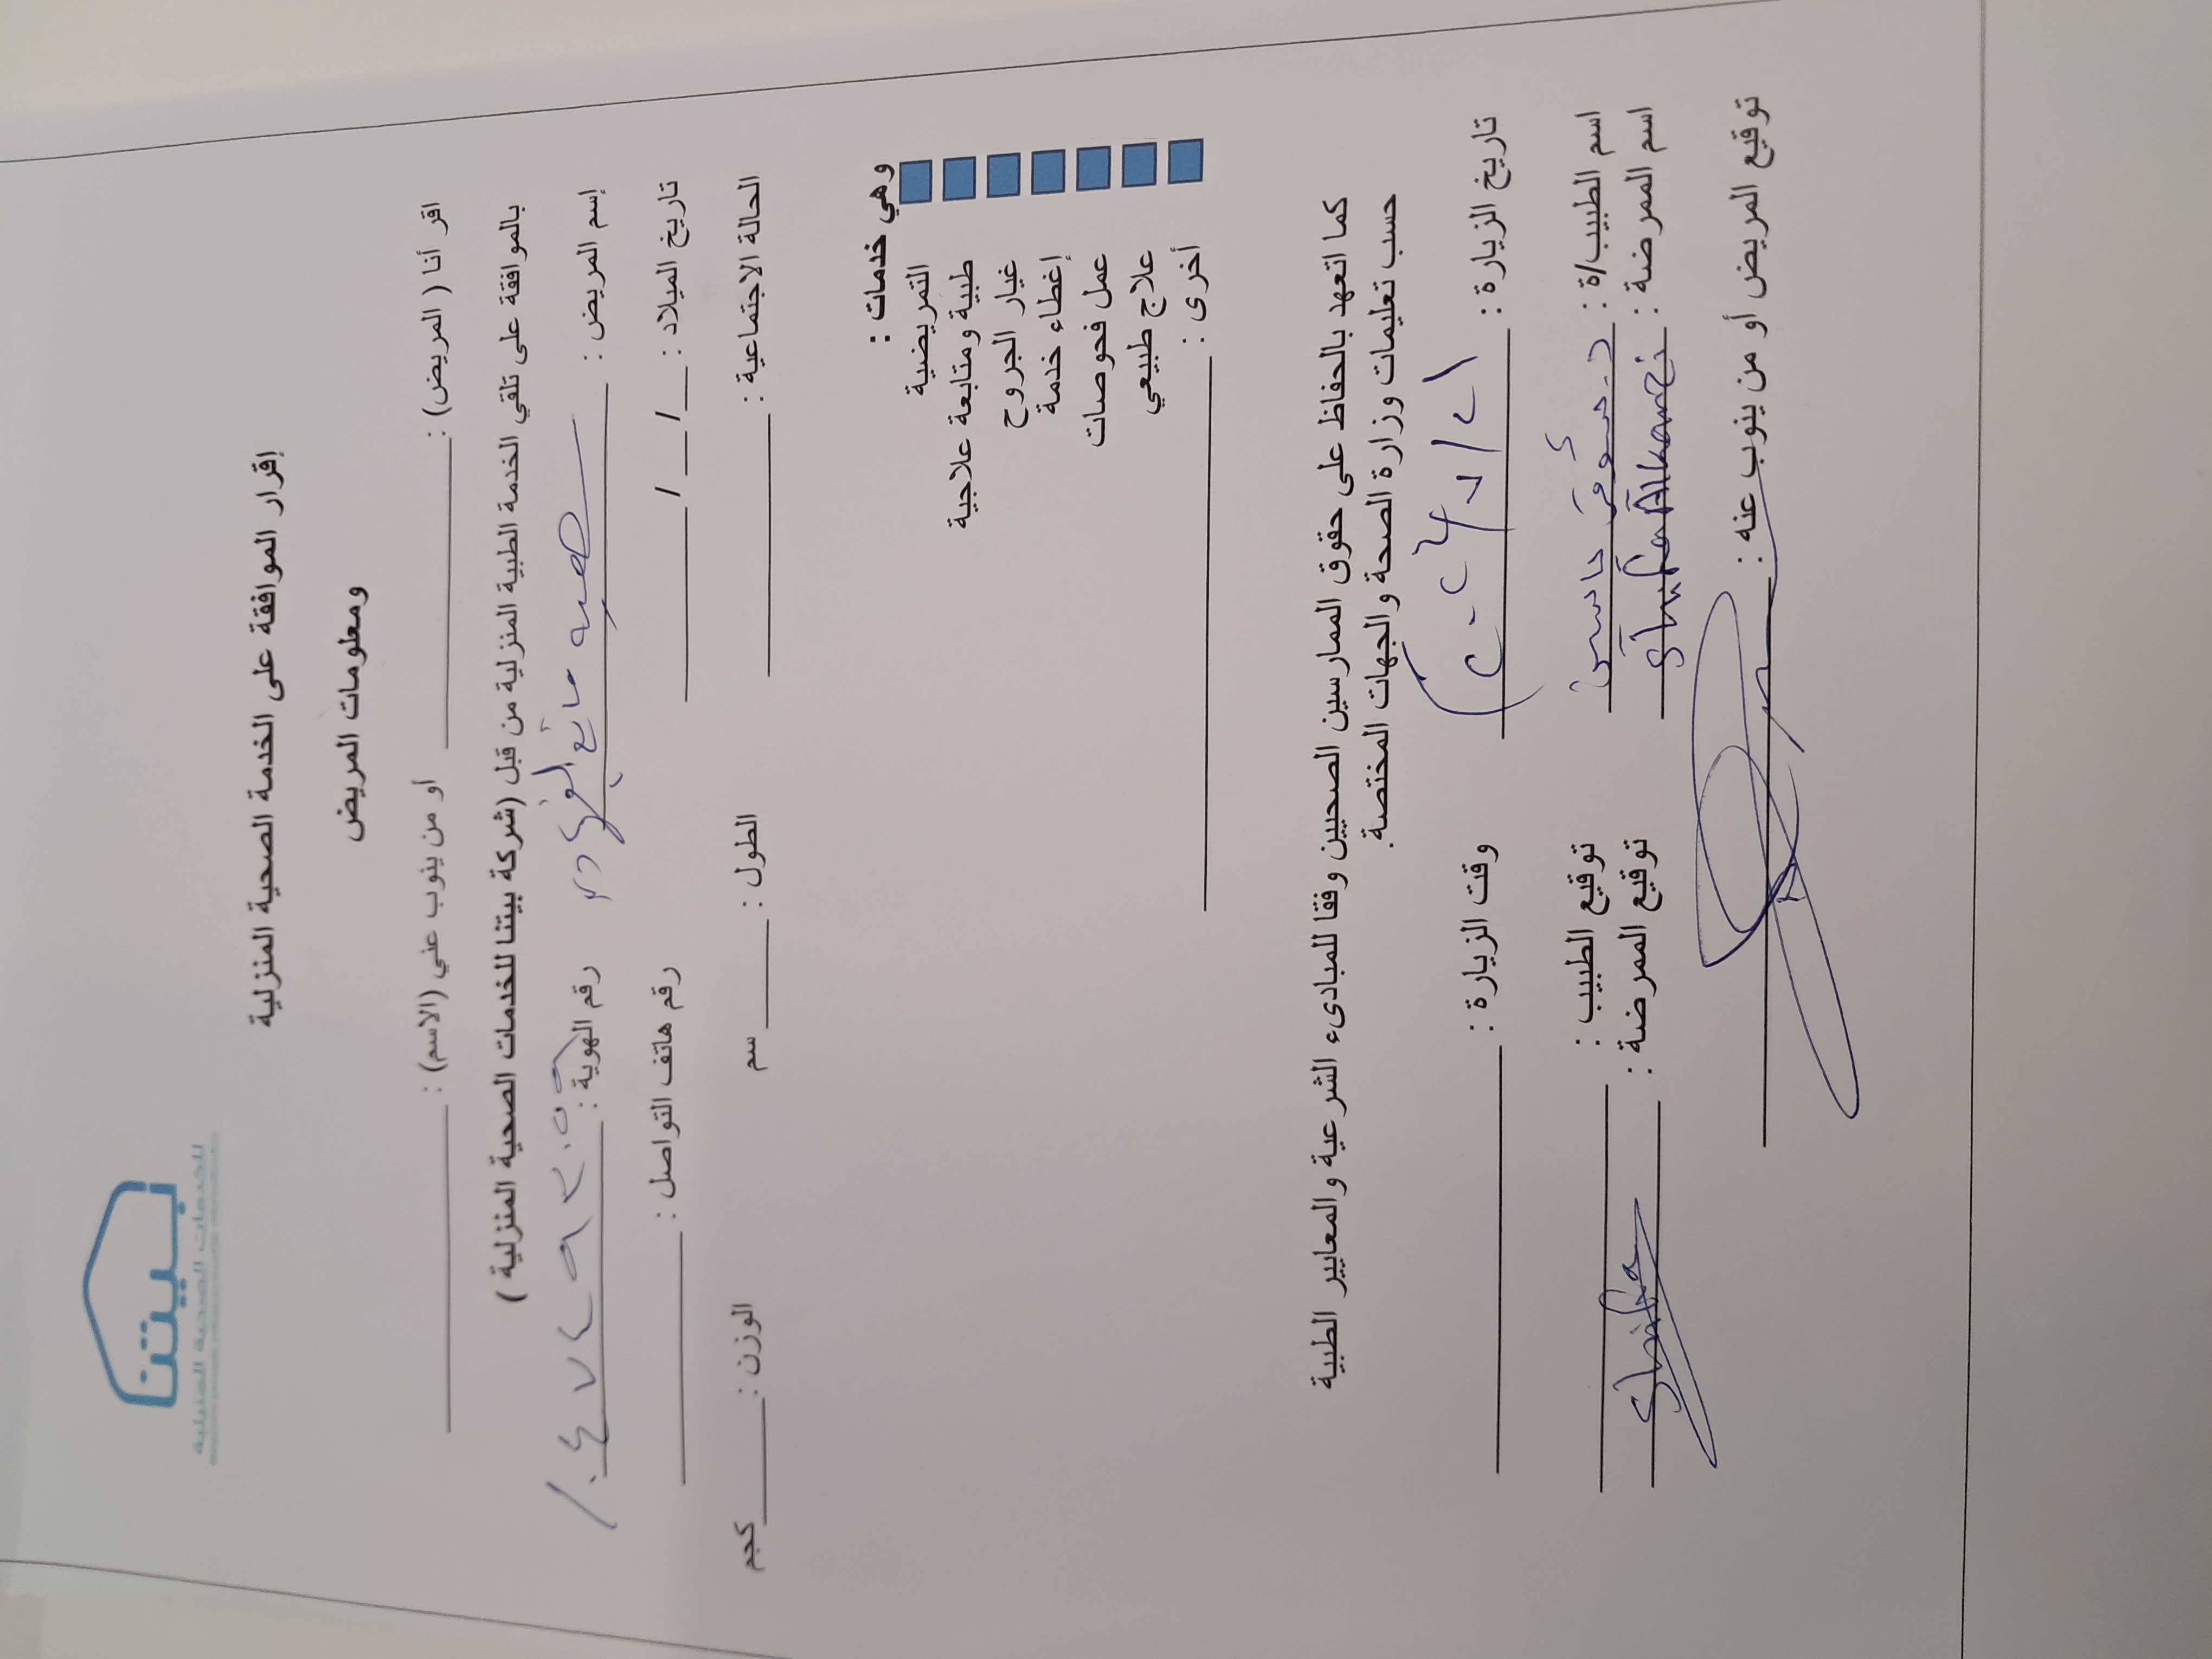 بيتنا
للخدمات الصحية المنزلية
إقرار الموافقة على الخدمة الصحية المنزلية
ومعلومات المريض
اقر أنا ( المريض) : ____________ أو من ينوب عني (الاسم) : ____________
بالموافقة على تلقي الخدمة الطبية المنزلية من قبل (شركة بيتنا للخدمات الصحية المنزلية )
إسم المريض : مانع رقم الهوية :
تاريخ الميلاد : __/__/______ رقم هاتف التواصل : ____________
الحالة الاجتماعية : ____________ الطول : _____ سم الوزن : _____ كجم
وهي خدمات :
التمريضية
طبية ومتابعة علاجية
غيار الجروح
إغطاء خدمة
عمل فحوصات
علاج طبيعي
أخرى : ____________
كما اتعهد بالحفاظ على حقوق الممارسين الصحيين وفقا للمبادىء الشرعية والمعايير الطبية
حسب تعليمات وزارة الصحة والجهات المختصة.
تاريخ الزيارة : وقت الزيارة : ____________
اسم الطبيب/ة : د. توقيع الطبيب : ____________
اسم الممرضة : توقيع الممرضة : Shifa
توقيع المريض أو من ينوب عنه :